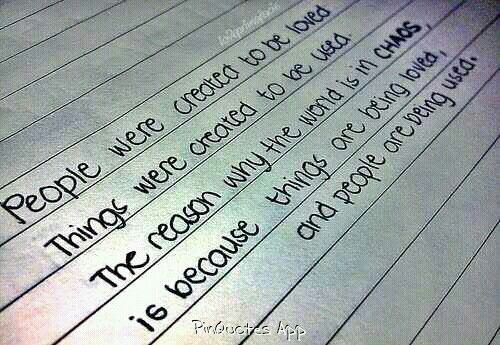 People were created to be loved
Things were created to be used.
The reason why the world is in CHAOS,
is because things are being loved,
and people are being used.
PinQuotes App